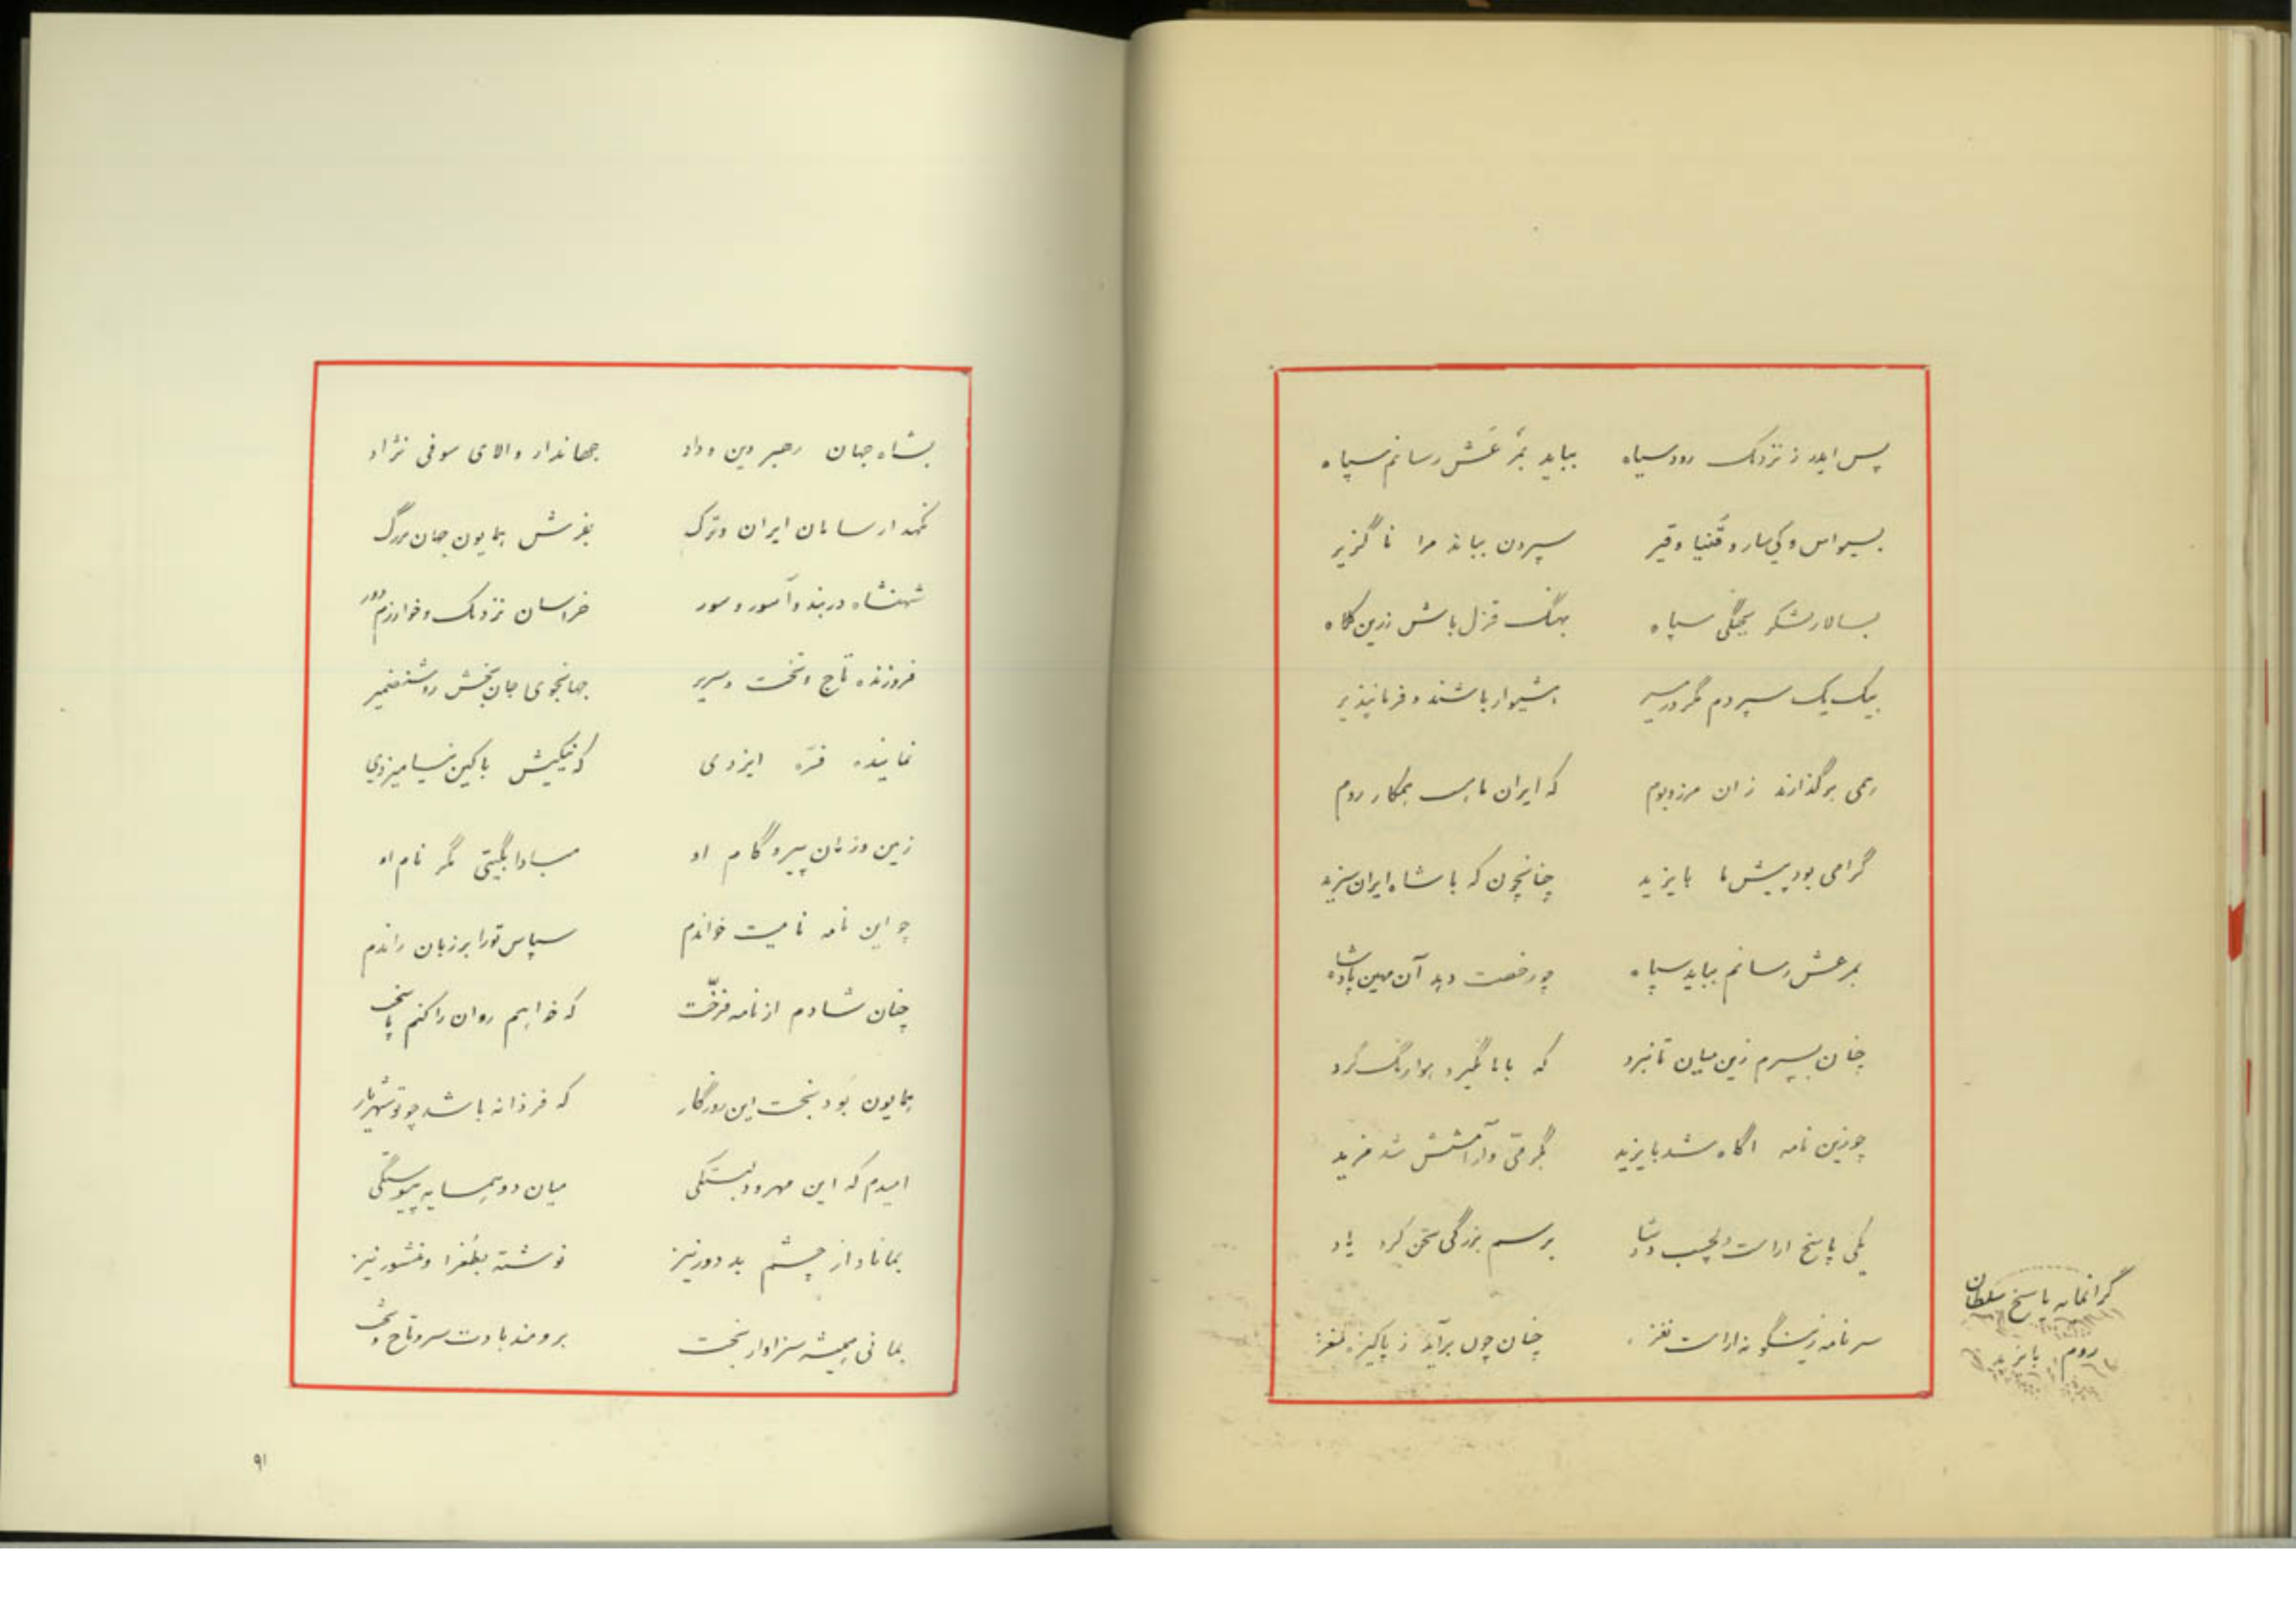 پس ایدر ز نزدیک رود سیاه بباید بمرعش رسانم سپاه
بسیواس و سپردن بباید مرا ناگزیر
بسالار لشکر بجنگی سپاه قزل باش زرین کلاه
بیک یک سپردم هشیوار باشند و فرمانپذیر
همی برگذارند زان مرز و بوم که ایران روم
گرامی بود پیش ما بایزید چنانچون که با شاه ایران سزید
بمرعش رسانم بباید سپاه چو رخصت دهد آن مهین پادشاه
چنان بسپرم زین میان تا نبرد که با ما نگیرد گرد
چو زین نامه اگاه شد بایزید شد مزید
یکی پاسخ اراست دلچسب و شاد برسم بزرگی سخن کرد یاد
سر نامه زینگونه اراست نغز چنان چون برآید ز پاکیزه مغز
گرانمایه پاسخ سلطان
روم بایزید
بشاه جهان رهبر دین و داد جهاندار والای صوفی نژاد
نگهدار سامان ایران و ترک
شهنشاه دربند و آمور و سور خراسان نزدیک و خوارزم دور
فروزنده تاج و تخت و سریر جهانجوی جان بخش روشنضمیر
نماینده فرّه ایزدی که نیکیش با کین نیامیزدی
زمین و زمان پیرو گام او مبادا بگیتی مگر نام او
چو این نامه نامیت خواندم سپاس تو را بر زبان راندم
چنان شادم از نامه فرّخت که خواهم روان را کنم پاسخت
همایون بود بخت این روزگار که فرزانه باشد چو تو شهریار
امیدم که این مهر و دلبستگی میان دو همسایه پیوستگی
بماناد از چشم بد دور نیز نوشته بطغرا و منشور نیز
بمانی همیشه سزاوار بخت برومند بادت سر و تاج و تخت
۹۱